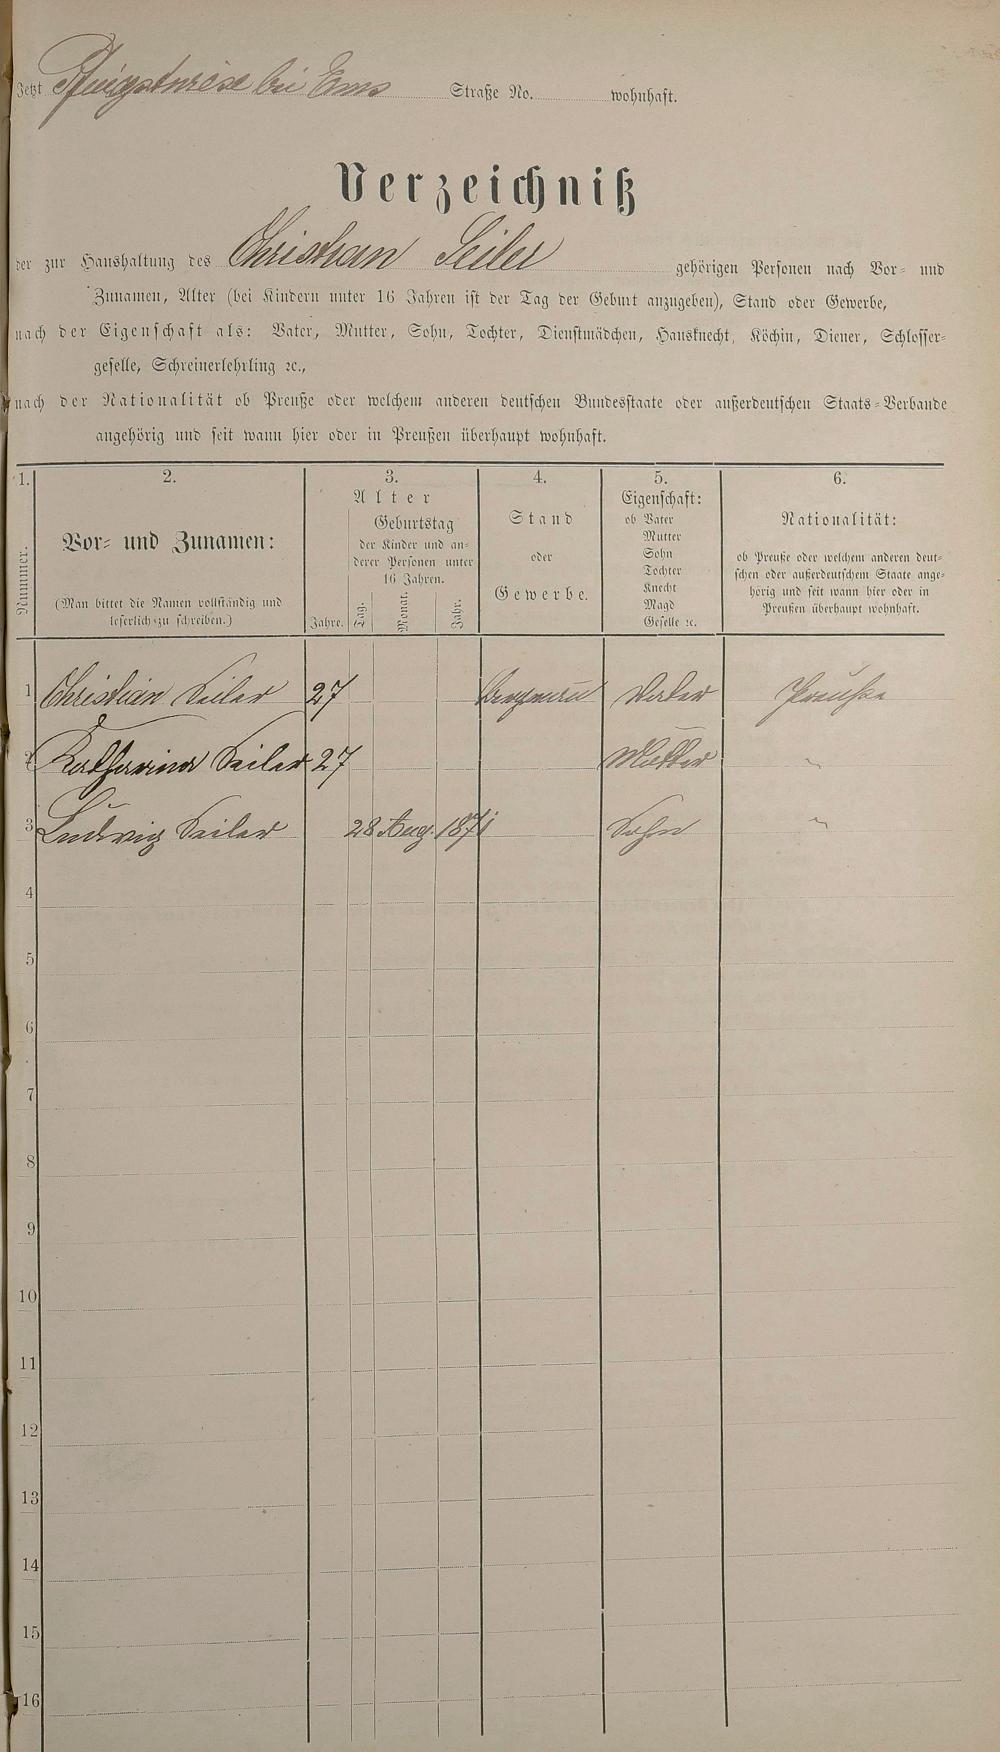 Jetzt Pfingstwiese bei Ems Straße No. wohnhaft.
Verzeichniß
der zur Haushaltung des Christian Seiler gehörigen Personen nach Vor- und
Zunamen, Alter (bei Kindern unter 16 Jahren ist der Tag der Geburt anzugeben), Stand oder Gewerbe,
nach der Eigenschaft als: Vater, Mutter, Sohn, Tochter, Dienstmädchen, Hausknecht, Köchin, Diener, Schlosser-
geselle, Schreinerlehrling ꝛc.,
nach der Nationalität ob Preuße oder welchem anderen deutschen Bundesstaate oder außerdeutschen Staats-Verbande
angehörig und seit wann hier oder in Preußen überhaupt wohnhaft.
1. 2. 3. 4. 5. 6.
Nummer.
Vor- und Zunamen:
(Man bittet die Namen vollständig und
leserlich zu schreiben.)
Alter
Geburtstag
der Kinder und an-
derer Personen unter
16 Jahren.
Jahre. Tag. Monat. Jahr.
Stand
oder
Gewerbe.
Eigenschaft:
ob Vater
Mutter
Sohn
Tochter
Knecht
Magd
Geselle ꝛc.
Nationalität:
ob Preuße oder welchem anderen deut-
schen oder außerdeutschem Staate ange-
hörig und seit wann hier oder in
Preußen überhaupt wohnhaft.
1 Christian Seiler 27 Bergmann Vater Preuße
2 Katharina Seiler 27 Mutter "
3 Ludwig Seiler 28 Aug. 1871 Sohn "
4
5
6
7
8
9
10
11
12
13
14
15
16